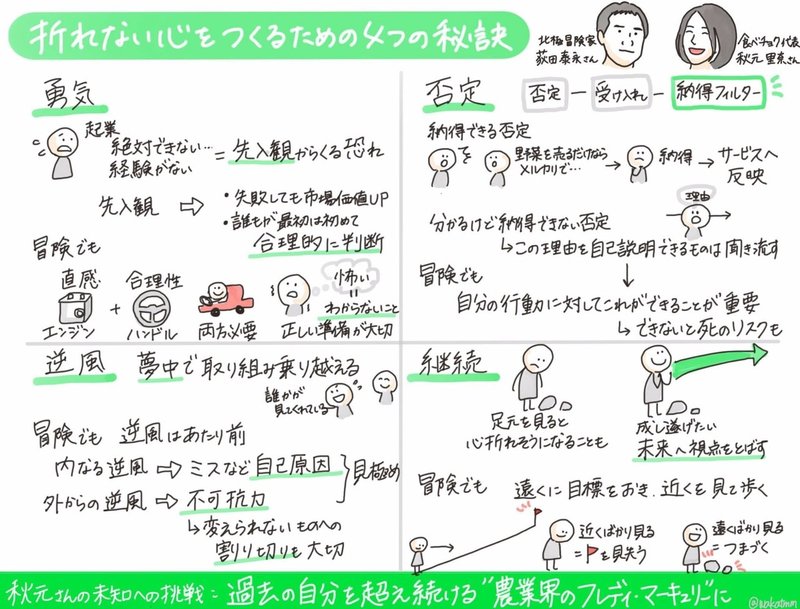 折れない心をつくるための4つの秘訣
北極冒険家
荻田泰永さん
食べチョク代表
秋元里奈さん
勇気
起業
絶対できない…
経験がない
= 先入観からくる恐れ
先入観 ⇨
・失敗しても市場価値UP
・誰もが最初は初めて
合理的に判断
冒険でも
直感
エンジン
+
合理性
ハンドル
両方必要
怖い
わからないこと
正しい準備が大切
否定
否定 ー 受け入れ ー 納得フィルター
納得できる否定
野菜を売るだけなら
メルカリで…
→ 納得 → サービスへ
反映
分かるけど納得できない否定
理由
↳この理由を自己説明できるものは聞き流す
↓
冒険でも
自分の行動に対してこれができることが重要
↳できないと死のリスクも
逆風
夢中で取り組み乗り越える
誰かが
見てくれている
冒険でも 逆風はあたり前
内なる逆風 ⇨ ミスなど自己原因
外からの逆風 ⇨ 不可抗力
} 見極め
↳変えられないものへの
割り切りも大切
継続
足元を見ると
心折れそうになることも
成し遂げたい
未来へ視点をとばす
冒険でも 遠くに目標をおき、近くを見て歩く
近くばかり見る
= を見失う
遠くばかり見る
= つまづく
秋元さんの未知への挑戦 = 過去の自分を超え続ける"農業界のフレディ・マーキュリー"に
@wakatmn